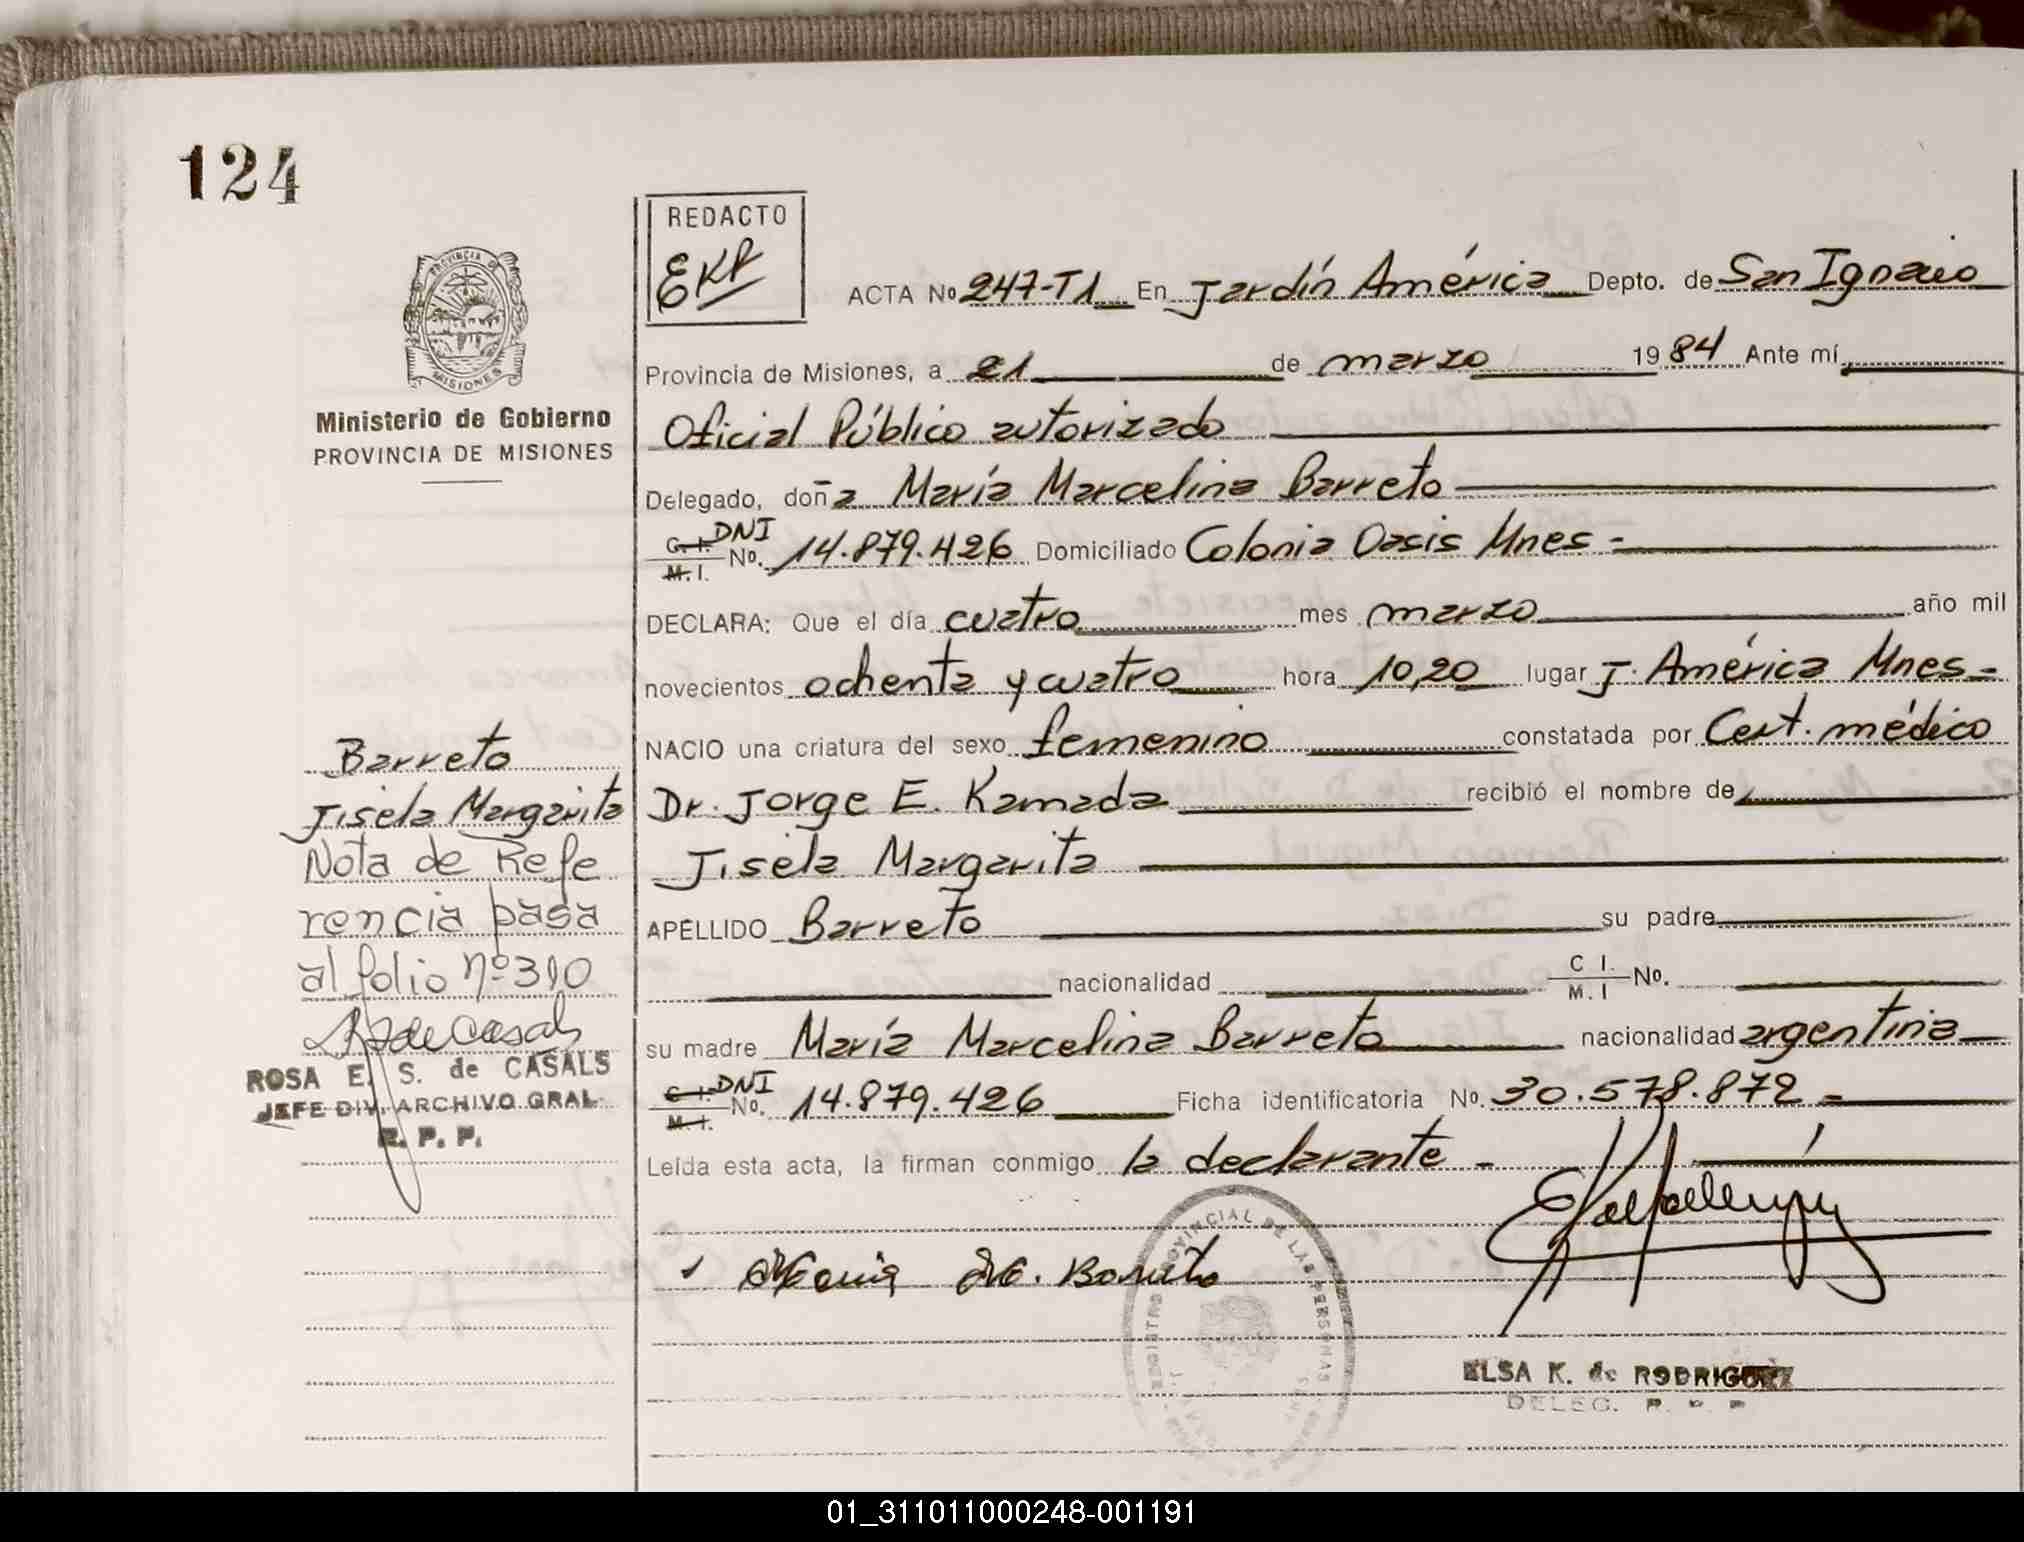 124
REDACTO
EKR
PROVINCIA DE
MISIONES
Ministerio de Gobierno
PROVINCIA DE MISIONES
ACTA No 247-T1 En Jardín América Depto. de San Ignacio
Provincia de Misiones, a 21 de marzo 1984 Ante mí
Oficial Público autorizado
Delegado, doña María Marcelina Barreto
C. I. DNI
M. I. No. 14.879.426 Domiciliado Colonia Oasis Mnes -
DECLARA: Que el día cuatro mes marzo año mil
novecientos ochenta y cuatro hora 10,20 lugar J. América Mnes -
NACIO una criatura del sexo femenino constatada por Cert. médico
Dr. Jorge E. Kamada recibió el nombre de
Jisela Margarita
APELLIDO Barreto su padre
nacionalidad C I. M. I No.
su madre María Marcelina Barreto nacionalidad argentina
C. I. DNI
M. I. No. 14.879.426 Ficha identificatoria No. 30.578.872 -
Leída esta acta, la firman conmigo la declarante -
Barreto
Jisela Margarita
Nota de Refe
rencia pasa
al folio nº 310
R S de Casals
ROSA E. S. de CASALS
JEFE DIV. ARCHIVO GRAL.
R. P. P.
Maria M. Barreto
REGISTRO PROVINCIAL DE LAS PERSONAS
ELSA K. de RODRIGUEZ
DELEG. R. P. P.
01_311011000248-001191